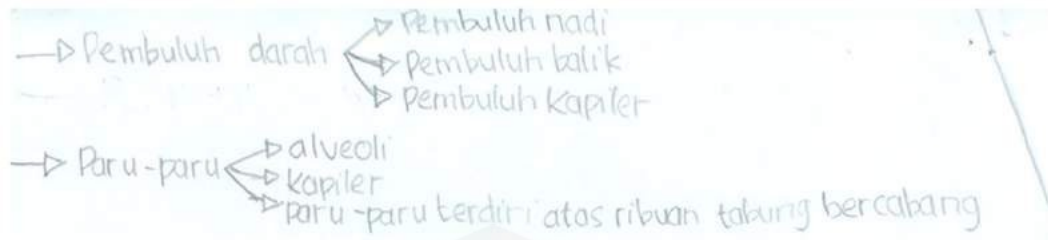 Pembuluh nadi
Pembuluh darah
Pembuluh balik
Pembuluh Kapiler
alveoli
Paru-paru
kapiler
paru-paru terdiri atas ribuan tabung bercabang